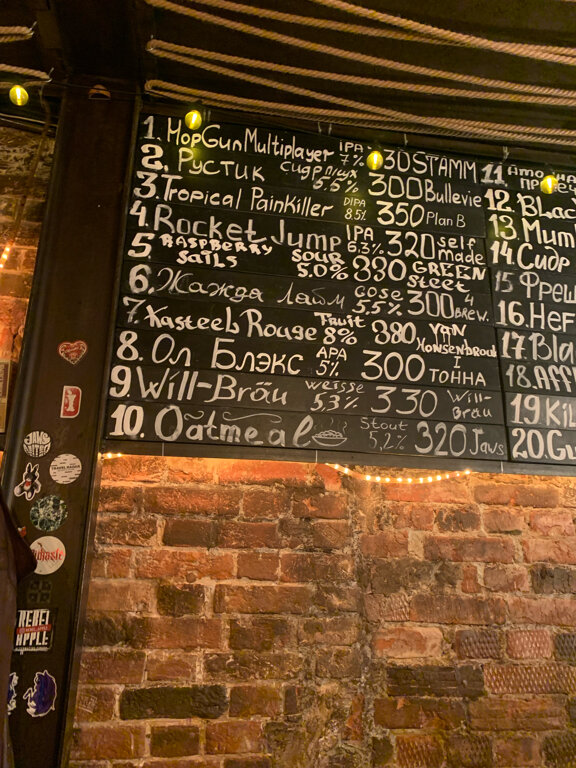 1. HopGunMultiplayer IPA 7% 30 STAMM
2. Рустик сидр п/сух 5.5% 300 Bullevie
3. Tropical PainKiller DIPA 8.5% 350 Plan B
4. Rocket Jump IPA 6.3% 320 self made
5 RASPBERRY SAILS SOUR 5.0% 330 GREEN Steet
6. Жажда Лайм GOSE 5.5% 300 4 BREW.
7. Kasteel Rouge Fruit 8% 380 VAN HONSENBROUCK
8. Ол Блэкс APA 5% 300 I ТОННА
9. Will-Bräu weisse 5,3% 330 Will-Bräu
10. Oatmeal Stout 5,2% 320 Javs
11
12.
13
14. Сидр
15
16.
17
18.
19
20.
JAWS
REBEL
APPLE